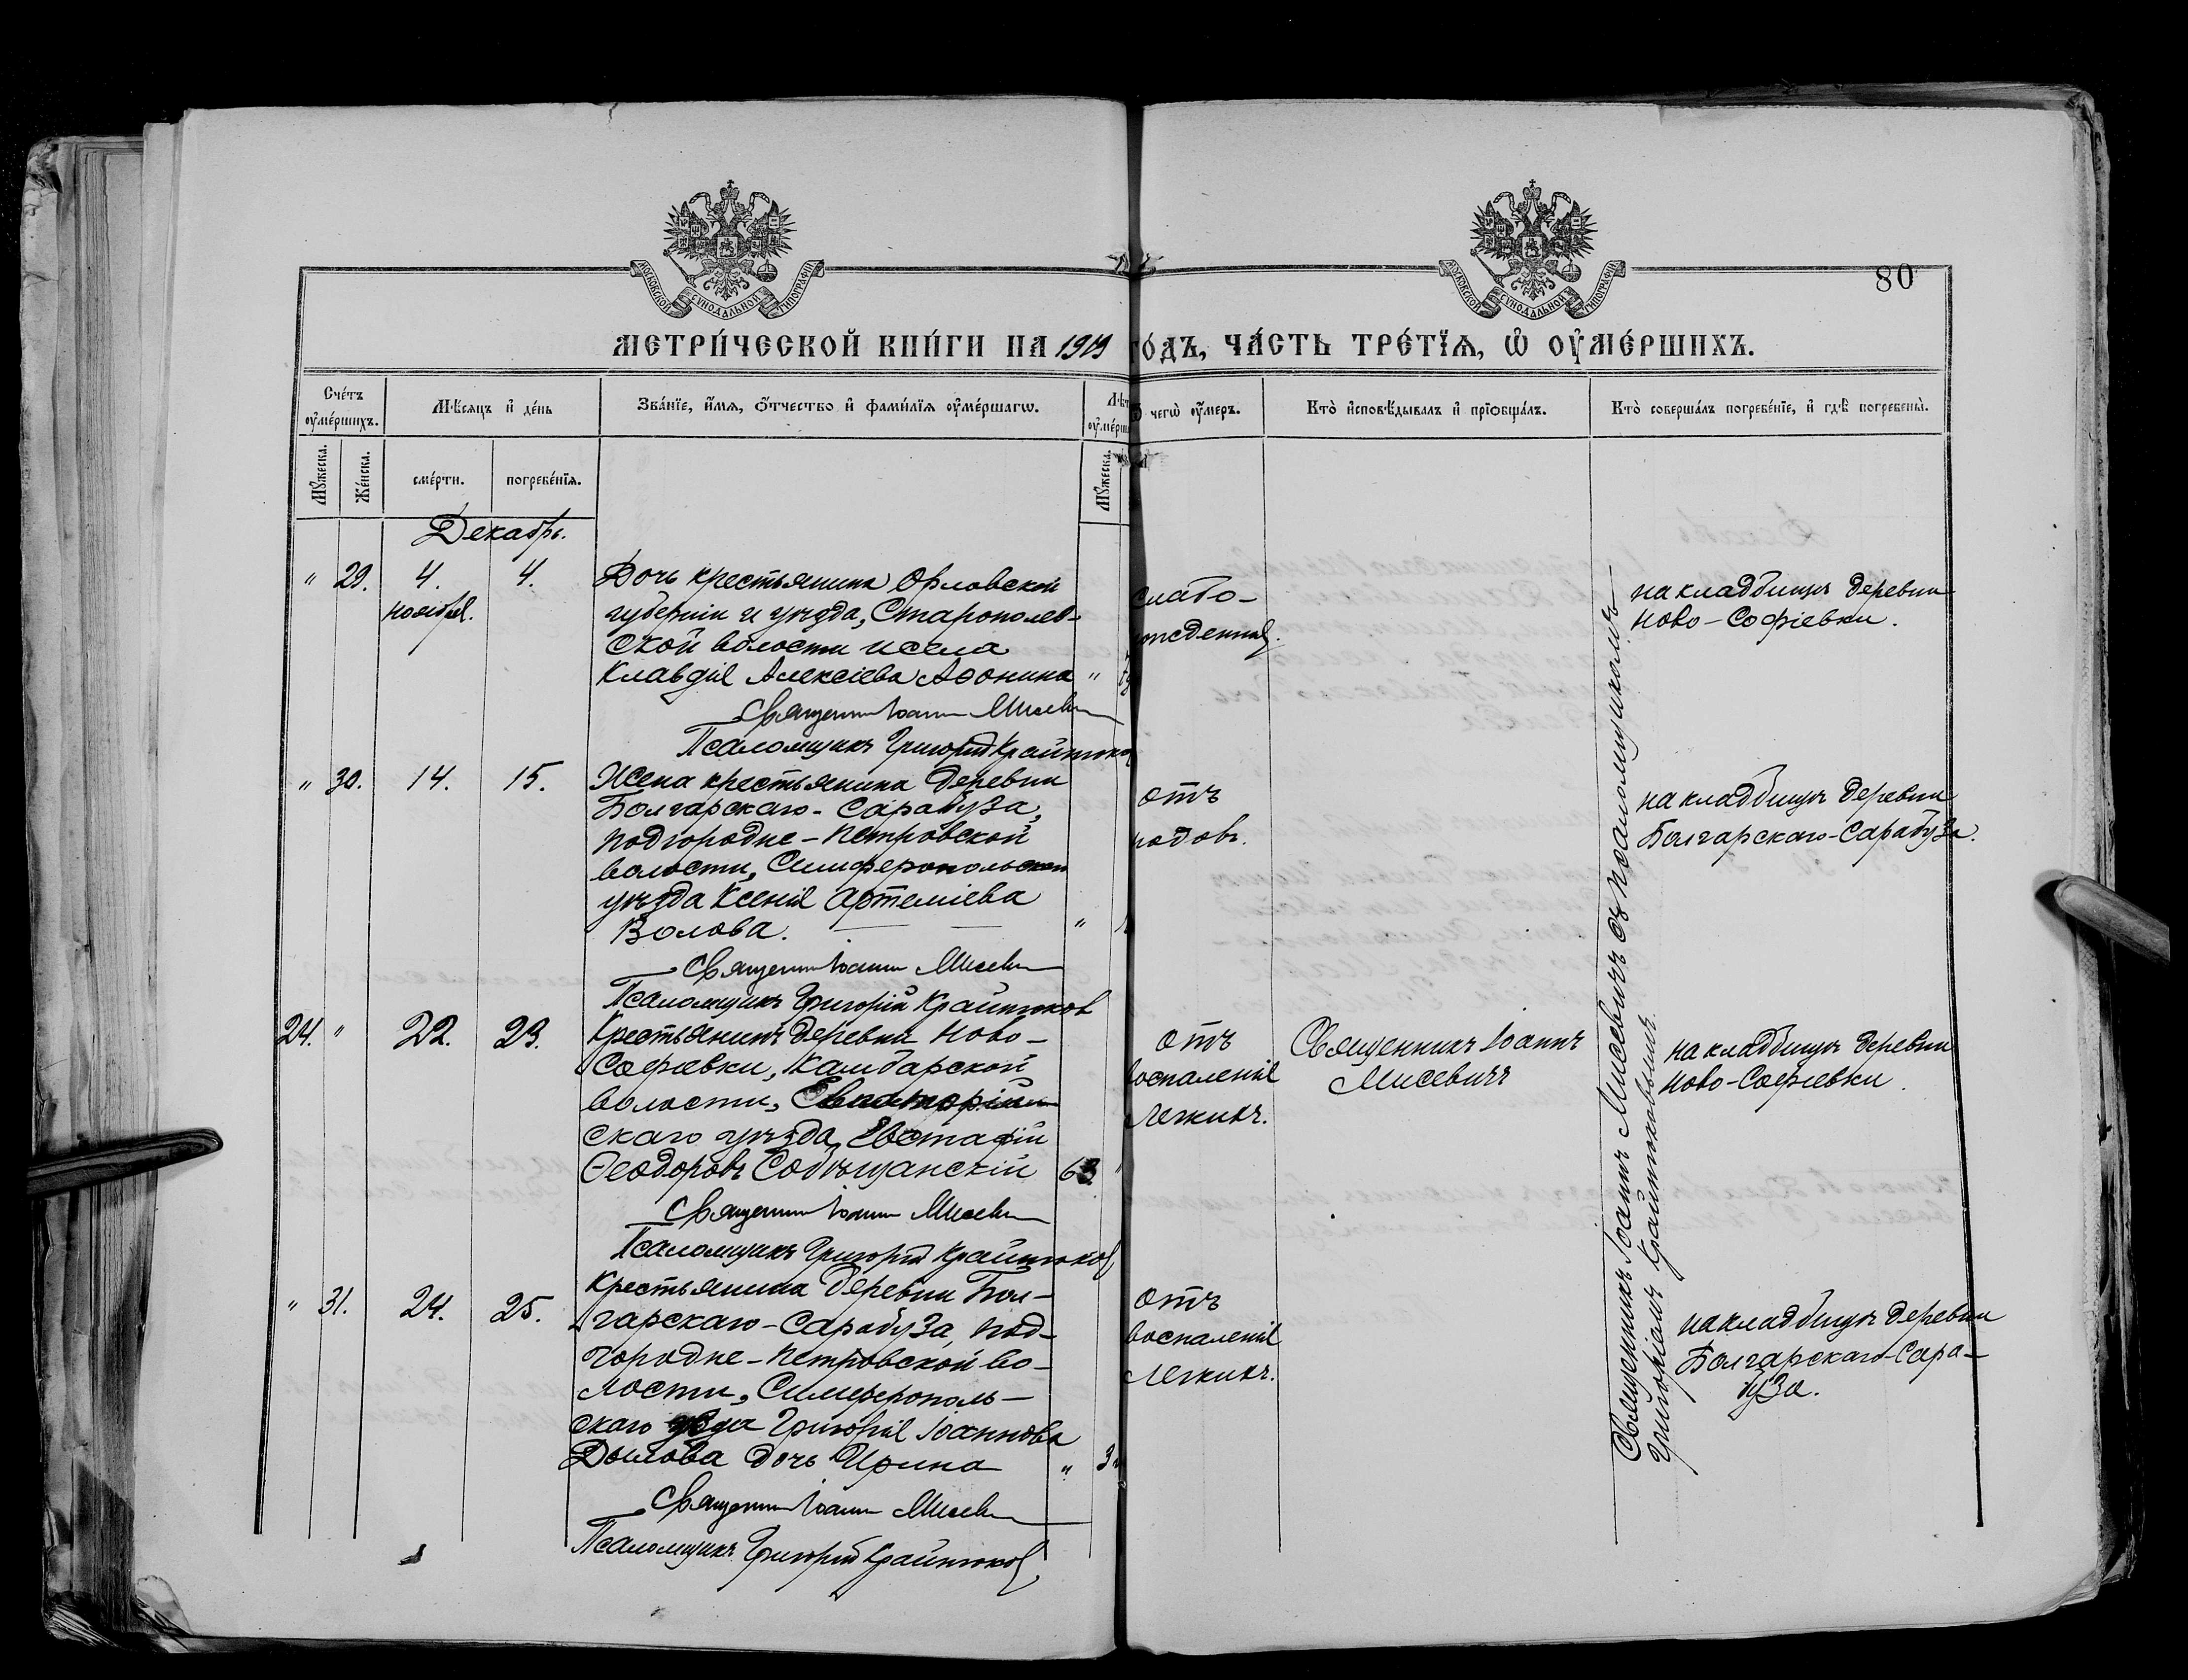 МОСКОВСКОЙ СѴНОДАЛЬНОЙ ТИПОГРАФІИ
МОСКОВСКОЙ СѴНОДАЛЬНОЙ ТИПОГРАФІИ
80
МЕТРИ́ЧЕСКОЙ КНИ́ГИ НА 1909 ГО́ДЪ, ЧА́СТЬ ТРЕ́ТЇѦ, Ѡ҆ ОУ҆МЕ́РШИХЪ.
Сче́тъ оу҆ме́ршихъ.
Мѣ́сѧцъ и҆ де́нь
Зва́нїе, и҆́мѧ, ѻ҆́тчество и҆ фами́лїѧ оу҆ме́ршагѡ.
Лѣт
оу҆ме́рш
чегѡ̀ оу҆́меръ.
Кто̀ и҆сповѣ́дывалъ и҆ прїѡбща́лъ.
Кто̀ соверша́лъ погребе́нїе, и҆ гдѣ̀ погребены̀.
Мꙋ́жеска.
Же́нска.
сме́рти.
погребе́нїѧ.
Мꙋ́жеска.
Декабрь.
" 29. 4. 4.
ноября.
Дочь крестьянина Орловской
губерніи и уѣзда, Старополев-
ской волости и села
Клавдія Алексіева Афонина "
Священник Іоанн Мисевич
Псаломщикъ Григорій Крайнюков
слабо-
рожденная.
на кладбищѣ деревни
Ново-Софіевки.
" 30. 14. 15.
Жена крестьянина деревни
Болгарскаго-Сарабуза,
Подгородне-Петровской
волости, Симферопольскаго
уѣзда Ксенія Артеміева
Волова. "
Священник Іоанн Мисевич
Псаломщикъ Григорій Крайнюков
отъ
родовъ.
на кладбищѣ деревни
Болгарскаго-Сарабуза.
24. " 22. 23.
Крестьянинъ деревни Ново-
Софіевки, Камбарской
волости, Евпаторій-
скаго уѣзда, Евстафій
Ѳеодоровъ Собчишанскій 63. "
Священник Іоанн Мисевич
Псаломщикъ Григорій Крайнюков
отъ
воспаленія
легкихъ.
Священникъ Іоаннъ
Мисевичъ
на кладбищѣ деревни
Ново-Софіевки.
" 31. 24. 25.
Крестьянина деревни Бол-
гарскаго-Сарабуза, Под-
городне-Петровской во-
лости, Симферополь-
скаго уѣзда Григорія Іоаннова
Дымова дочь Ирина " 3
Священник Іоанн Мисевич
Псаломщикъ Григорій Крайнюков
отъ
воспаленія
легкихъ.
на кладбищѣ деревни
Болгарскаго-Сара-
буза.
Священникъ Іоаннъ Мисевичъ съ псаломщикомъ
Григоріемъ Крайнюковымъ.